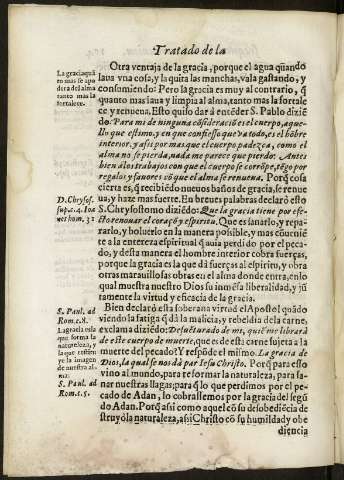 Tratado de la
Otra ventaja de la gracia, porque el agua quãndo
laua vna cosa, y la quita las manchas, vala gastando, y
consumiendo: Pero la gracia es muy al contrario, q̃
quanto mas laua y limpia al alma, tanto mas la fortale
ce, y renueua. Esto quiso dar à entẽder S. Pablo diziẽ
do. Para mi de ninguna cõsideraciõ es el cuerpo, aque-
llo que estimo, y en que confiesso que va todo, es el hõbre
interior, y assi por mas que el cuerpo padezca, como el
alma no se pierda, nada me parece que pierdo: Antes
bien a los trabajos con que el cuerpo se corrõpe, tẽgo por
regalos y fauores cõ que el alma se renueua. Porq̃ cosa
cierta es, q̃ recibiẽdo nueuos baños de gracia, se renue
ua, y haze mas fuerte. En breues palabras declarò esto
S. Chrysostomo diziẽdo: Que la gracia tiene por efe-
cto renouar el coraçõ y espiritu. Que es sanarlo, y repa-
rarlo, y boluerlo en la manera possible, y mas cõueniẽ
te a la entereza espiritual q̃ auia perdido por el pe-
cado, y desta manera el hombre interior cobra fuerças,
porque la gracia es la que dà fuerças al espiritu, y obra
otras marauillosas obras en el alma donde entra, en lo
qual muestra nuestro Dios su inmẽsa liberalidad, y jũ
tamente la virtud y eficacia de la gracia.
Bien declarò esta soberana virtud el Apostol quãdo
viendo la fatiga q̃ dà la malicia, y rebeldia de la carne,
exclama diziẽdo: Desuẽturado de mi, quiẽ me librarà
de este cuerpo de muerte, que es de esta carne sujeta a la
muerte del pecado? Y respõde el mismo. La gracia de
Dios, la qual se nos dà por Iesu Christo. Porq̃ para esto
vino al mundo, para reformar la naturaleza, y para sa-
nar nuestras llagas; para q̃ lo que perdimos por el pe-
cado de Adan, lo cobrassemos por la gracia del segũ
do Adan. Porq̃ assi como aquel cõ su desobediẽcia de
struyò la naturaleza, assi Christo cõ su humildad y obe
diencia
La gracia quã
to mas se apo
dera del alma
tanto mas la
fortalece.
D. Chrysos.
sup. c. 4. Ioa
net hom. 31
S. Paul. ad
Rom. c. 8.
La gracia es la
que forma la
naturaleza, y
la que resti
ye la imagen
de nuestra al-
ma.
S. Paul. ad
Rom. c. 5.